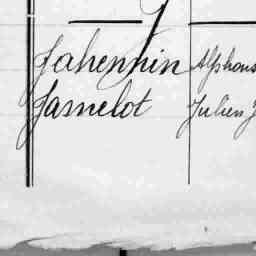 J
Jahennin Alphons
Jamelot Julien J